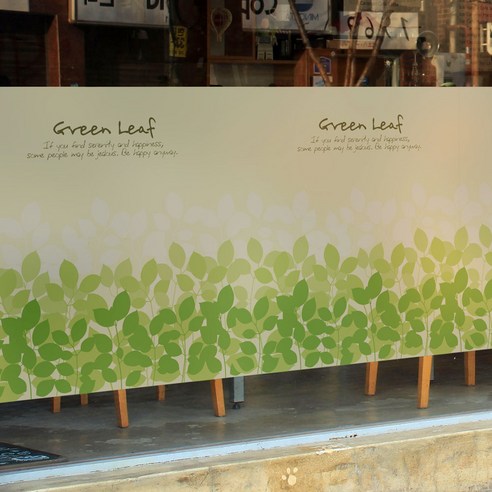 Green Leaf
If you find serenity and happiness,
some people may be jealous. Be happy anyway.
Green Leaf
If you find serenity and happiness,
some people may be jealous. Be happy anyway.